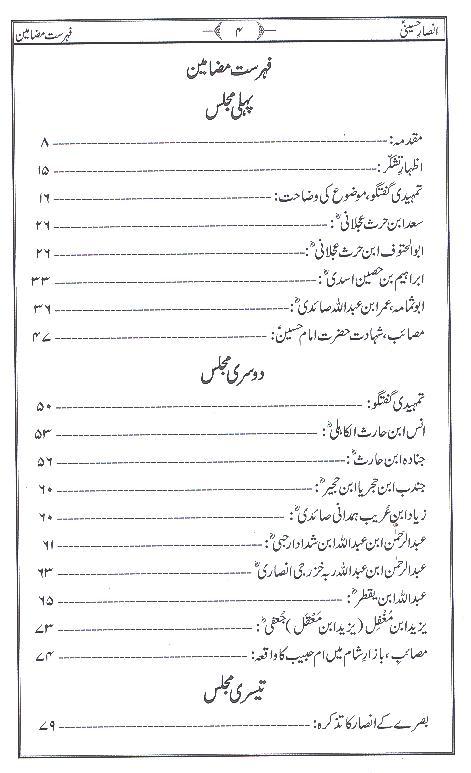 انصارِ حسینیؑ ۴ فہرست مضامین
فہرست مضامین
پہلی مجلس
مقدمہ: ۸
اظہارِ تشکّر: ۱۵
تمہیدی گفتگو، موضوع کی وضاحت: ۱۶
سعد ابن حرث عجلانیؓ: ۲۶
ابوالحتوف ابن حرث عجلانیؓ: ۲۶
ابراہیم بن حصین اسدیؓ: ۳۳
ابوثمامہ، عمر ابن عبداللہ صائدیؓ: ۳۶
مصائب، شہادت حضرت امام حسینؑ: ۴۷
دوسری مجلس
تمہیدی گفتگو: ۵۰
انس ابن حارث الکاہلیؓ: ۵۳
جنادہ ابن حارثؓ: ۵۶
جندب ابن حجر یا ابن حجیرؓ: ۶۰
زیاد ابن عُریب ہمدانی صائدیؓ: ۶۰
عبدالرحمٰن ابن عبداللہ ابن شداد ارحبیؓ: ۶۱
عبدالرحمٰن ابن عبداللہ ربہ خزرجی انصاریؓ: ۶۳
عبداللہ ابن یقطرؓ: ۶۵
یزید ابن مُغْفِل (یزید ابن مَعْقَل) جُعفیؓ: ۷۳
مصائب، بازارِ شام میں ام حبیب کا واقعہ: ۷۴
تیسری مجلس
بصرے کے انصار کا تذکرہ: ۷۹